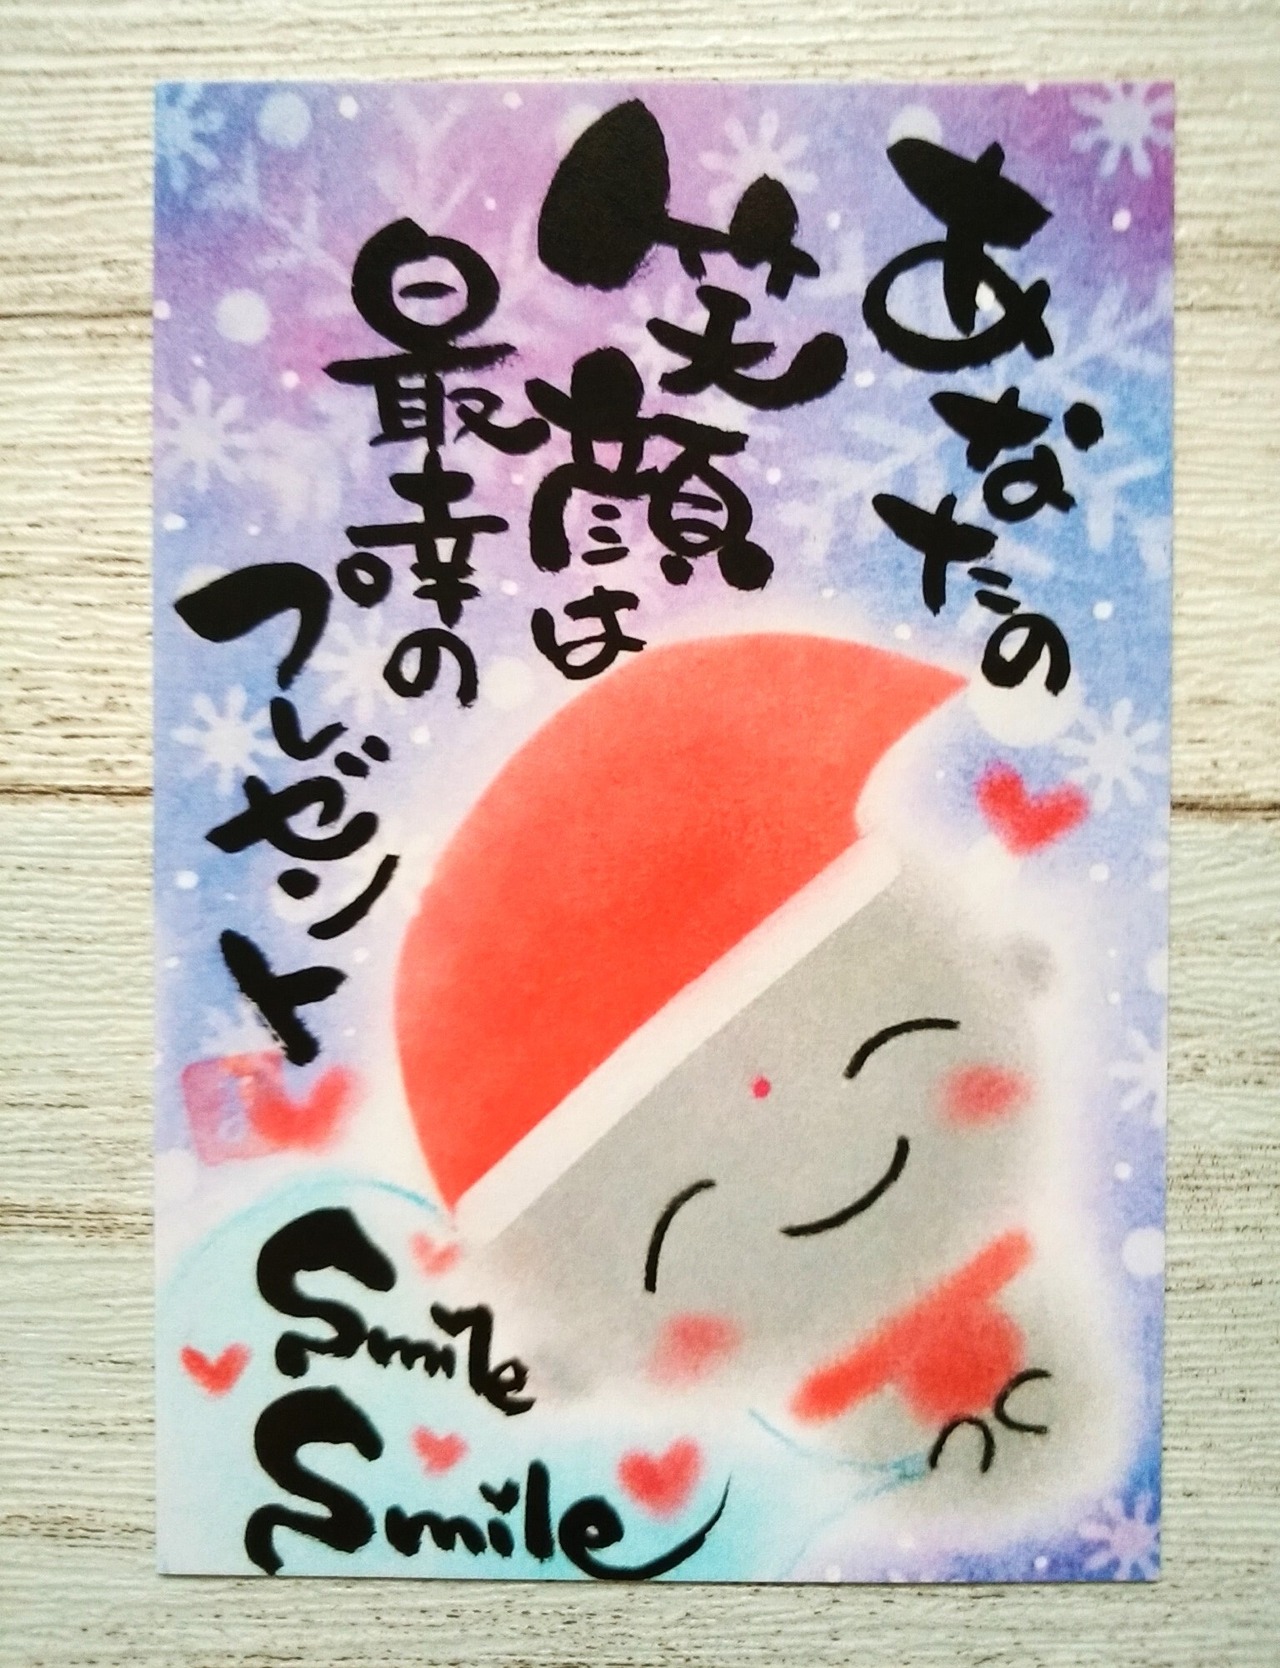 あなたの
笑顔は
最幸の
プレゼント
Smile
Smile